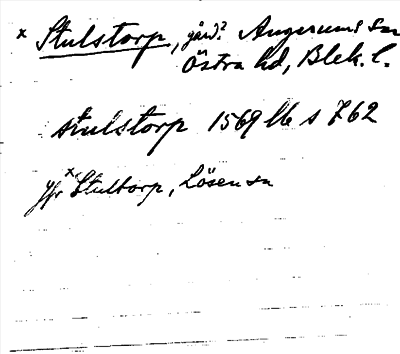 × Stulstorp, gård? Angerums sn
Östra hd, Blek. l.
stulstorp 1569 Ub s 762
Jfr × Stultorp, Lösen sn